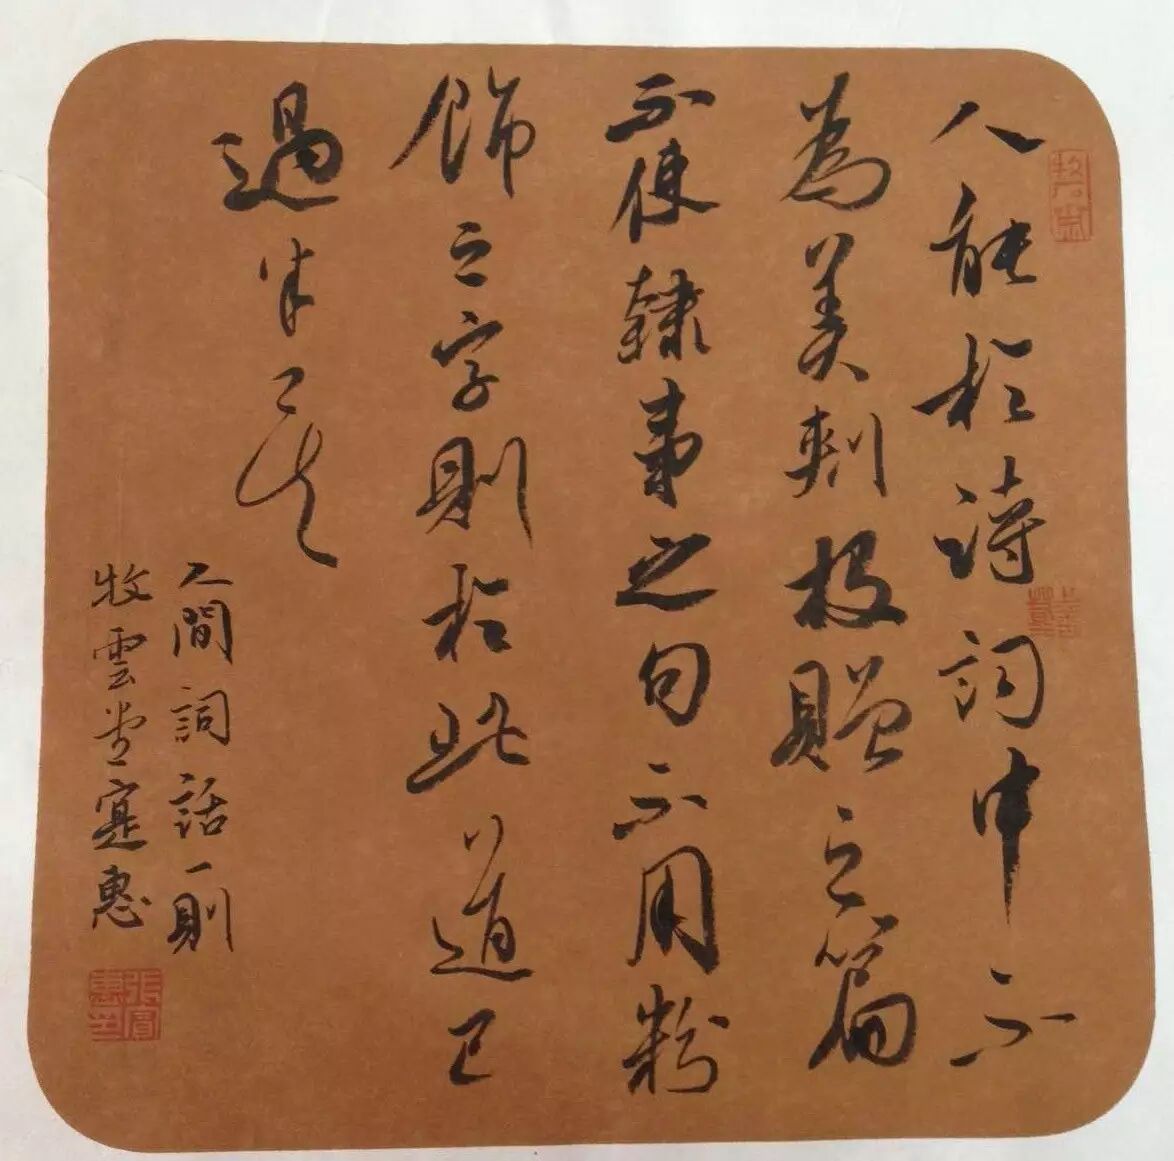 人能於詩詞中不
為美刺投贈之篇
不使隸事之句不用粉
飾之字則於此道已
過半矣
人間詞話一則
牧雲堂寔惠